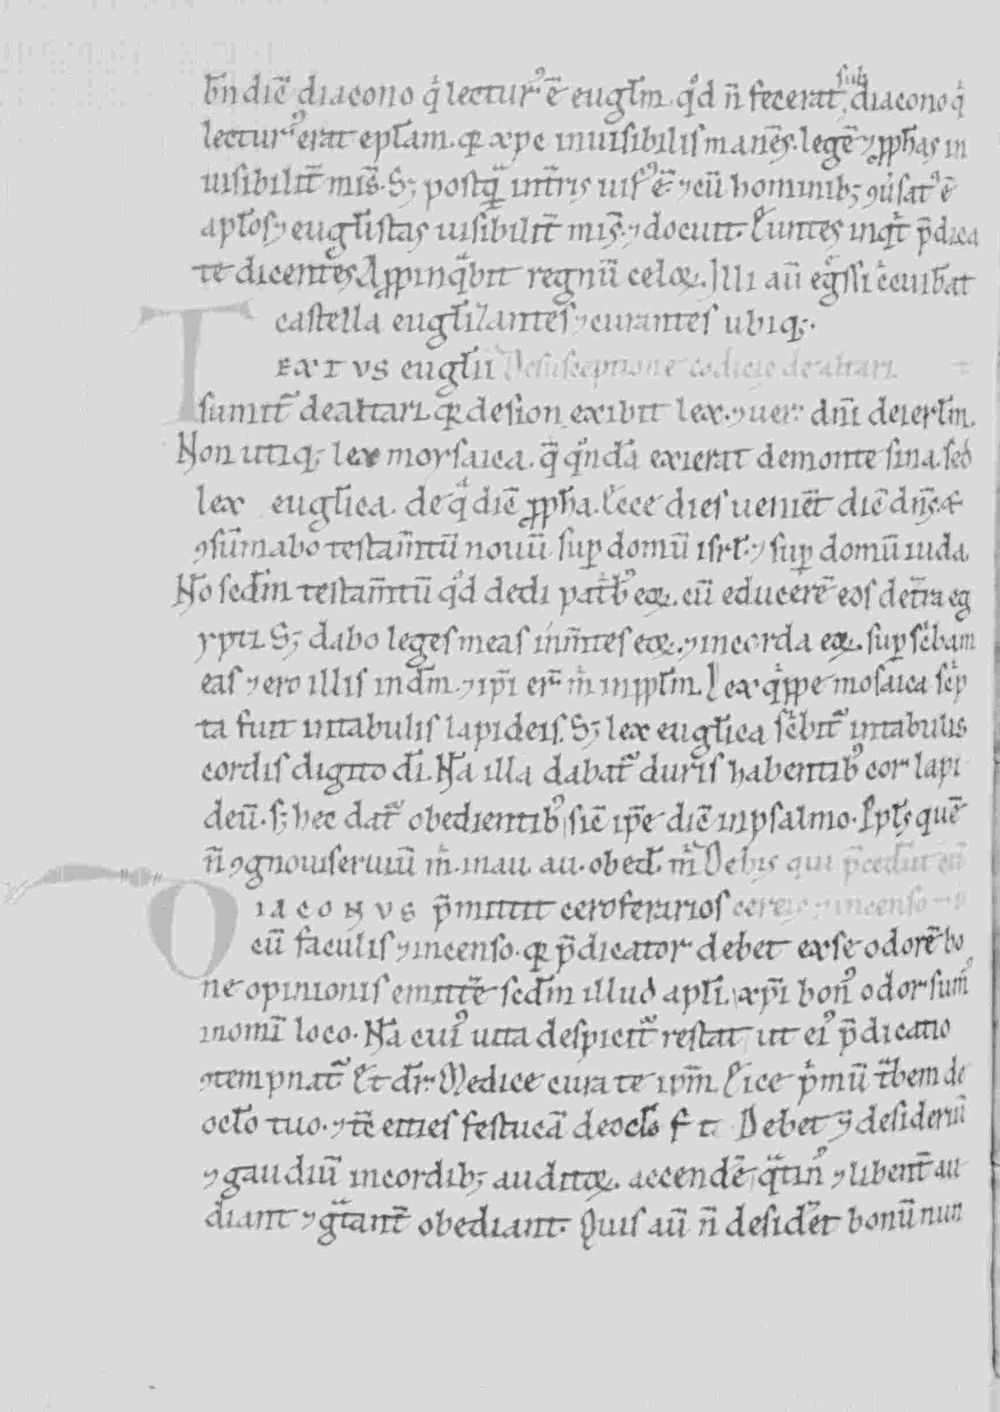 bñ diē diacono q̇ lectur᷒ ē eugl̄m. qḋ ñ fecerat subdiacono q̇
lectur᷒ erat epl̄am. q̄ xp̄c inuisibilis manēs. legē ⁊ ꝓph̄as in
uisibilit̄ mis̄. S; postq̄ᵃ int̄ris uis᷒ ē. ⁊ cū hominib; ꝯu̇sat᷒ ē
apl̄os ⁊ eugl̄istas uisibilit̄ mis̄. ⁊ docuit. Euntes inqⁱt p̄dica
te dicentes Aꝓpinq̄bit regnū celoꝝ. Illi aū eg̊ssi cⁱcuib̄at
castella eugl̄izantes ⁊ curantes ubiq;.
TEXTVS eugl̄ii De susceptione codicis de altari.
sumit᷑ de altari. q̄ de sion exibit lex. ⁊ uer᷒ dn̄i de ierl̄m.
Non utiq; lex moysaica. q̄ qⁿdā exierat de monte sina. sed
lex eugl̄ica. de qᵃ diē ꝓph̄a. Ecce dies ueniēt diē dn̄s &
ꝯsūmabo testam̄tū nouū sup̱ domū isrl̄. ⁊ sup̱ domū iuda.
Nō scd̄m testam̄tū qḋ dedi patⁱb᷒ eoꝝ. cū educerē eos de t̄ra eg
ypti. S; dabo leges meas in m̄tes eoꝝ. ⁊ in corda eoꝝ. sup̱sc̄bam
eas ⁊ ero illis in dm̄. ⁊ ip̄i er̄ mⁱ in ppl̄m. Lex qⁱppe mosaica scⁱp
ta fuit in tabulis lapideis. S; lex eugl̄ica scⁱbit᷑ in tabulis
cordis digito dī. Nā illa dabat᷑ duris habentib᷒ cor lapi
deū. s; hec dat᷑ obedientib᷒ sic̄ ip̄e diē in psalmo. Ppl̄s quē
ñ ꝯgnoui seruiū mⁱ. in au. au. obed. mⁱ De his qui p̄cedūt cū
DIACONVS p̄mittit ceroferarios cereis ⁊ incenso
cū faculis ⁊ incenso. q̄ p̄dicator debet ex se odorē bo
ne opinionis emittē scd̄m illud apl̄i. xp̄i bon᷒ odor sum᷒
in om̄i loco. Nā cui᷒ uita despicit᷑ restat ut ei᷒ p̄dicatio
ꝯtempnat᷑. Et dr̄. Medice cura te ip̄m. Eice pⁱmū tᵃbem de
oclō tuo. ⁊ t̄c eities festucā de oclō f t. Debet ⁊ desideriū
⁊ gaudiū in cordib; auditoꝝ. accendē qᵃtin᷒ ⁊ libent̄ au
diant ⁊ gᵃtant̄ obediant. Quis aū ñ desider̄et bonū nun